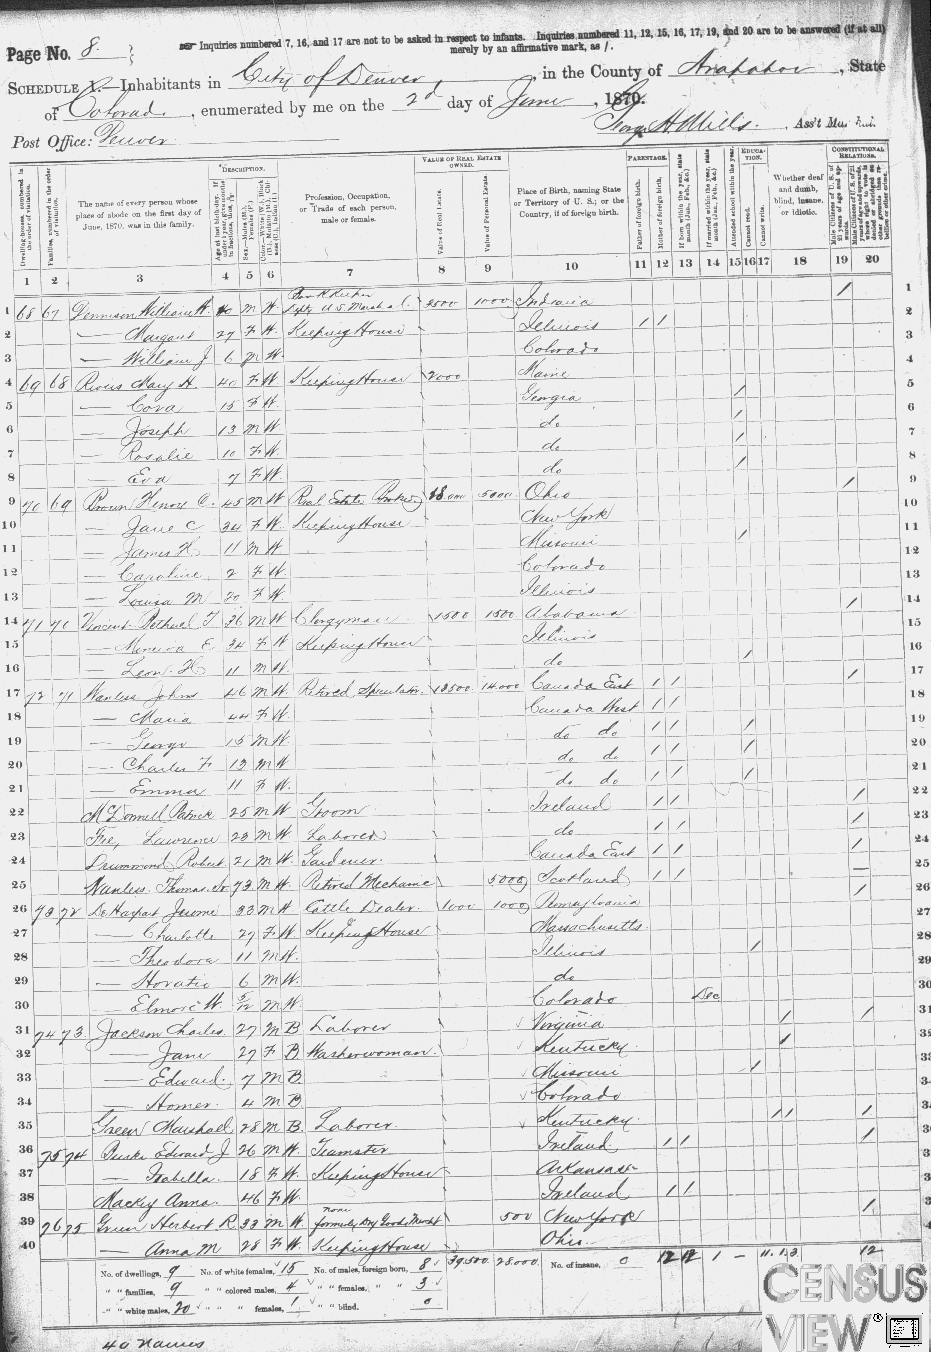 Page No. 8.
☞ Inquiries numbered 7, 16, and 17 are not to be asked in respect to infants. Inquiries numbered 11, 12, 15, 16, 17, 19, and 20 are to be answered (if at all) merely by an affirmative mark, as /.
SCHEDULE 1.—Inhabitants in City of Denver, in the County of Arapahoe, State
of Colorado, enumerated by me on the 2d day of June, 1870.
Post Office: Denver
George H Mills., Ass't Marshal.
DESCRIPTION. VALUE OF REAL ESTATE OWNED. PARENTAGE. EDUCATION. CONSTITUTIONAL RELATIONS.
Dwelling-houses, numbered in the order of visitation.
Families, numbered in the order of visitation.
The name of every person whose place of abode on the first day of June, 1870, was in this family.
Profession, Occupation, or Trade of each person, male or female.
Value of Real Estate.
Value of Personal Estate.
Place of Birth, naming State or Territory of U. S.; or the Country, if of foreign birth.
Father of foreign birth.
Mother of foreign birth.
Attended school within the year.
Cannot read.
Cannot write.
Whether deaf and dumb, blind, insane, or idiotic.
1 2 3 4 5 6 7 8 9 10 11 12 13 14 15 16 17 18 19 20
1 68 67 Dennison William H. 40 M W Book Keeper Depty U.S. Marshal 2500 1000 Indiana / 1
2 — Margaret 27 F W Keeping House Illinois / / 2
3 — William J 6 M W Colorado 3
4 69 68 Rivers Mary H. 40 F W Keeping House 2000 Maine 4
5 — Cora 15 F W Georgia / 5
6 — Joseph 13 M W do / 6
7 — Rosalie 10 F W do / 7
8 — Eva 7 F W do / 8
9 70 69 Brown Henry C. 45 M W Real Estate Broker 18,000 5000 Ohio / 9
10 — Jane C 34 F W Keeping House New York 10
11 — James H 11 M W Missouri / 11
12 — Caroline 2 F W Colorado 12
13 — Louisa M 20 F W Illinois 13
14 71 70 Vincent Bethuel T 36 M W Clergyman 1500 1500 Alabama / 14
15 — Minerva E 34 F W Keeping House Illinois 15
16 — Leon H 11 M W do / 16
17 72 71 Wanless John 46 M W Retired Speculator 12500 14000 Canada East / / / 17
18 — Maria 44 F W Canada West / / 18
19 — George 15 M W do do / / / 19
20 — Charles F 13 M W do do / / / 20
21 — Emma 11 F W do do / / / 21
22 McDonnell Patrick 25 M W Groom Ireland / / / 22
23 Lawrence 23 M W Laborer do / / / 23
24 Drummond Robert 21 M W Gardener Canada East / / / 24
25 Wanless Thomas Sr 73 M W Retired Mechanic 5000 Scotland / / 25
26 73 72 De Harpart Jerome 33 M W Cattle Dealer 1000 1000 Pennsylvania / 26
27 — Charlotte 27 F W Keeping House Massachusetts 27
28 — Theodora 11 M W Illinois / 28
29 — Horatio 6 M W do 29
30 — Elmore W. 5/12 M W Colorado Dec 30
31 74 73 Jackson Charles 27 M B Laborer Virginia / / 31
32 — Jane 27 F B Washerwoman Kentucky / 32
33 — Edward 7 M B Missouri / 33
34 — Homer 4 M B Colorado 34
35 Green Marshall 28 M B Laborer Kentucky / / / 35
36 75 74 Burke Edward J 26 M W Teamster Ireland / / / 36
37 — Isabella 18 F W Keeping House Arkansas 37
38 Mackey Anna 46 F W Ireland / / 38
39 76 75 Green Herbert R 33 M W none formerly Dry Goods Mercht 500 New York / 39
40 — Anna M 28 F W Keeping House Ohio 40
No. of dwellings, 9 No. of white females, 15 No. of males, foreign born, 8 39,500 28.000 No. of insane, 0 12 12 1 – 11 1 3 12
" " families, 9 " " colored males, 4 " " females, " " 3
" " white males, 20 " " " females, 1 " " blind. 0
40 names
CENSUS
VIEW®